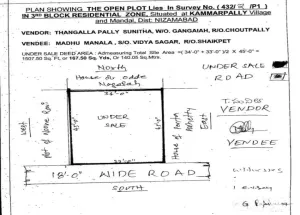 PLAN SHOWING THE OPEN PLOT Lies In Survey No. ( 432/ /P1 )
IN 3rd BLOCK RESIDENTIAL ZONE, Situated at KAMMARPALLY Village
and Mandal, Dist: NIZAMABAD
VENDOR: THANGALLA PALLY SUNITHA, W/O. GANGAIAH, R/O.CHOUTPALLY
VENDEE: MADHU MANALA, S/O. VIDYA SAGAR, R/O.SHAIKPET
UNDER SALE DEED AREA : Admeasuring Total Site Area =( 34'-0" + 33'-0" )/2 X 45'-0" =
1507.50 Sq. Ft, or 167.50 Sq. Yds, Or 140.05 Sq Mtrs.
North
UNDER SALE
ROAD
House of
34'-0"
West
45'-0"
UNDER
SALE
East
VENDOR
VENDEE
33'-0"
18'-0" WIDE ROAD
SOUTH